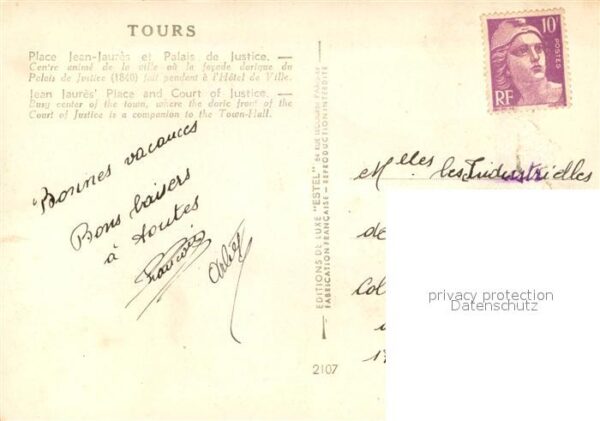 TOURS
Place Jean-Jaurès et Palais de Justice. —
Centre animé de la ville où la façade dorique du
Palais de Justice (1840) fait pendant à l'Hôtel de Ville.
Jean Jaurès' Place and Court of Justice. —
Busy center of the town, where the doric front of the
Court of Justice is a companion to the Town-Hall.
Bonnes vacances
Bons baisers
à toutes
Françoise
EDITIONS DE LUXE "ESTEL"
FABRICATION FRANÇAISE - REPRODUCTION INTERDITE
2107
10F
POSTES
RF
Melles les Industrielles
de
Col
privacy protection
Datenschutz